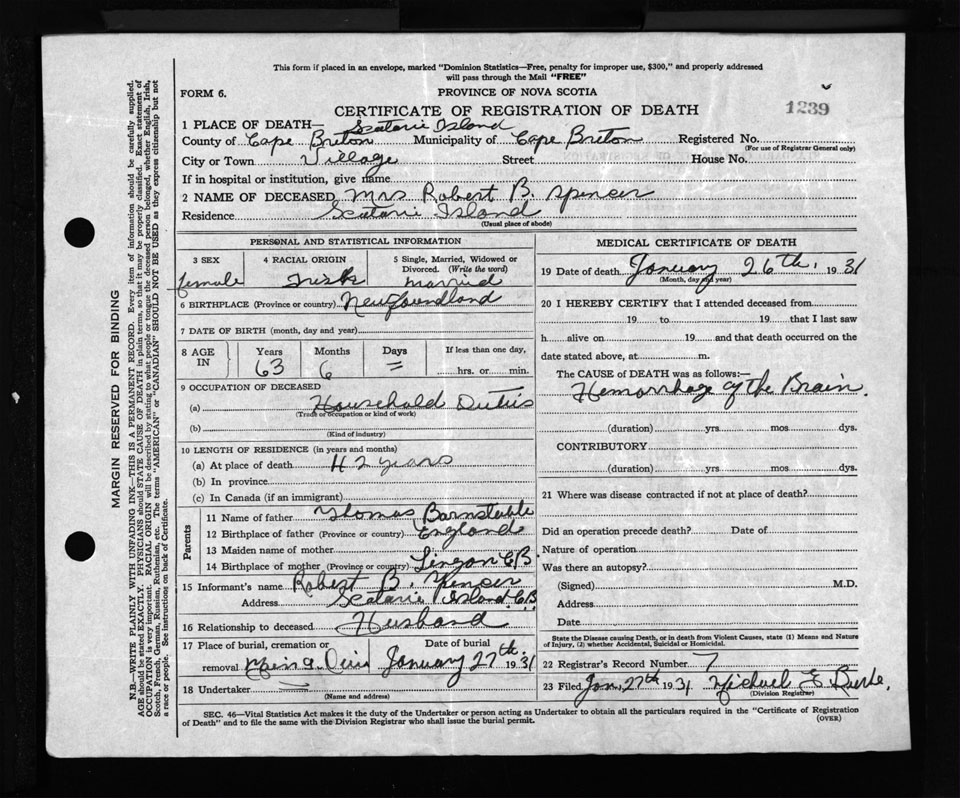 This form if placed in an envelope, marked "Dominion Statistics—Free, penalty for improper use, $300," and properly addressed
will pass through the Mail "FREE"
FORM 6.
PROVINCE OF NOVA SCOTIA
CERTIFICATE OF REGISTRATION OF DEATH
1239
1 PLACE OF DEATH— Scatarie Island
County of Cape Breton Municipality of Cape Breton Registered No.
(For use of Registrar General only)
City or Town Village Street House No.
If in hospital or institution, give name
2 NAME OF DECEASED Mrs Robert B. Spencer
Residence Scatarie Island
(Usual place of abode)
PERSONAL AND STATISTICAL INFORMATION
3 SEX 4 RACIAL ORIGIN 5 Single, Married, Widowed or
Divorced. (Write the word)
female Irish married
6 BIRTHPLACE (Province or country) Newfoundland
7 DATE OF BIRTH (month, day and year)
8 AGE IN Years Months Days If less than one day,
63 6 = hrs. or min.
9 OCCUPATION OF DECEASED
(a) Household Duties
(Trade or occupation or kind of work)
(b)
(Kind of industry)
10 LENGTH OF RESIDENCE (in years and months)
(a) At place of death 42 years
(b) In province
(c) In Canada (if an immigrant)
Parents
11 Name of father Thomas Barnstable
12 Birthplace of father (Province or country) England
13 Maiden name of mother
14 Birthplace of mother (Province or country) Lingan C B
15 Informant's name Robert B. Spencer
Address Scatarie Island C.B.
16 Relationship to deceased Husband
17 Place of burial, cremation or Date of burial
removal January 27th. 1931
18 Undertaker =
(Name and address)
MEDICAL CERTIFICATE OF DEATH
19 Date of death January 26th, 1931
(Month, day and year)
20 I HEREBY CERTIFY that I attended deceased from
19 to 19 that I last saw
h alive on 19 and that death occurred on the
date stated above, at m.
The CAUSE of DEATH was as follows:—
Hemorrhage of the Brain.
(duration) yrs. mos dys.
CONTRIBUTORY.
(duration) yrs. mos. dys.
21 Where was disease contracted if not at place of death?
Did an operation precede death? Date of
Nature of operation
Was there an autopsy?
(Signed) M.D.
Address
Date
State the Disease causing Death, or in death from Violent Causes, state (1) Means and Nature
of Injury, (2) whether Accidental, Suicidal or Homicidal.
22 Registrar's Record Number 7
23 Filed Jan, 27th 1931 Michael Burke.
(Division Registrar)
SEC. 46—Vital Statistics Act makes it the duty of the Undertaker or person acting as Undertaker to obtain all the particulars required in the "Certificate of Registration
of Death" and to file the same with the Division Registrar who shall issue the burial permit.
(OVER)
MARGIN RESERVED FOR BINDING
N.B.—WRITE PLAINLY WITH UNFADING INK—THIS IS A PERMANENT RECORD. Every item of information should be carefully supplied.
AGE should be stated EXACTLY. PHYSICIANS should STATE CAUSE OF DEATH in plain terms, so that it may be properly classified. Exact statement of
OCCUPATION is very important. RACIAL ORIGIN will be described by stating to what people or tongue the deceased person belonged, whether English, Irish,
Scotch, French, German, Russian, Ruthenian, etc. The terms "AMERICAN" or "CANADIAN" SHOULD NOT BE USED as they express citizenship but not
a race or people. See instructions on back of Certificate.